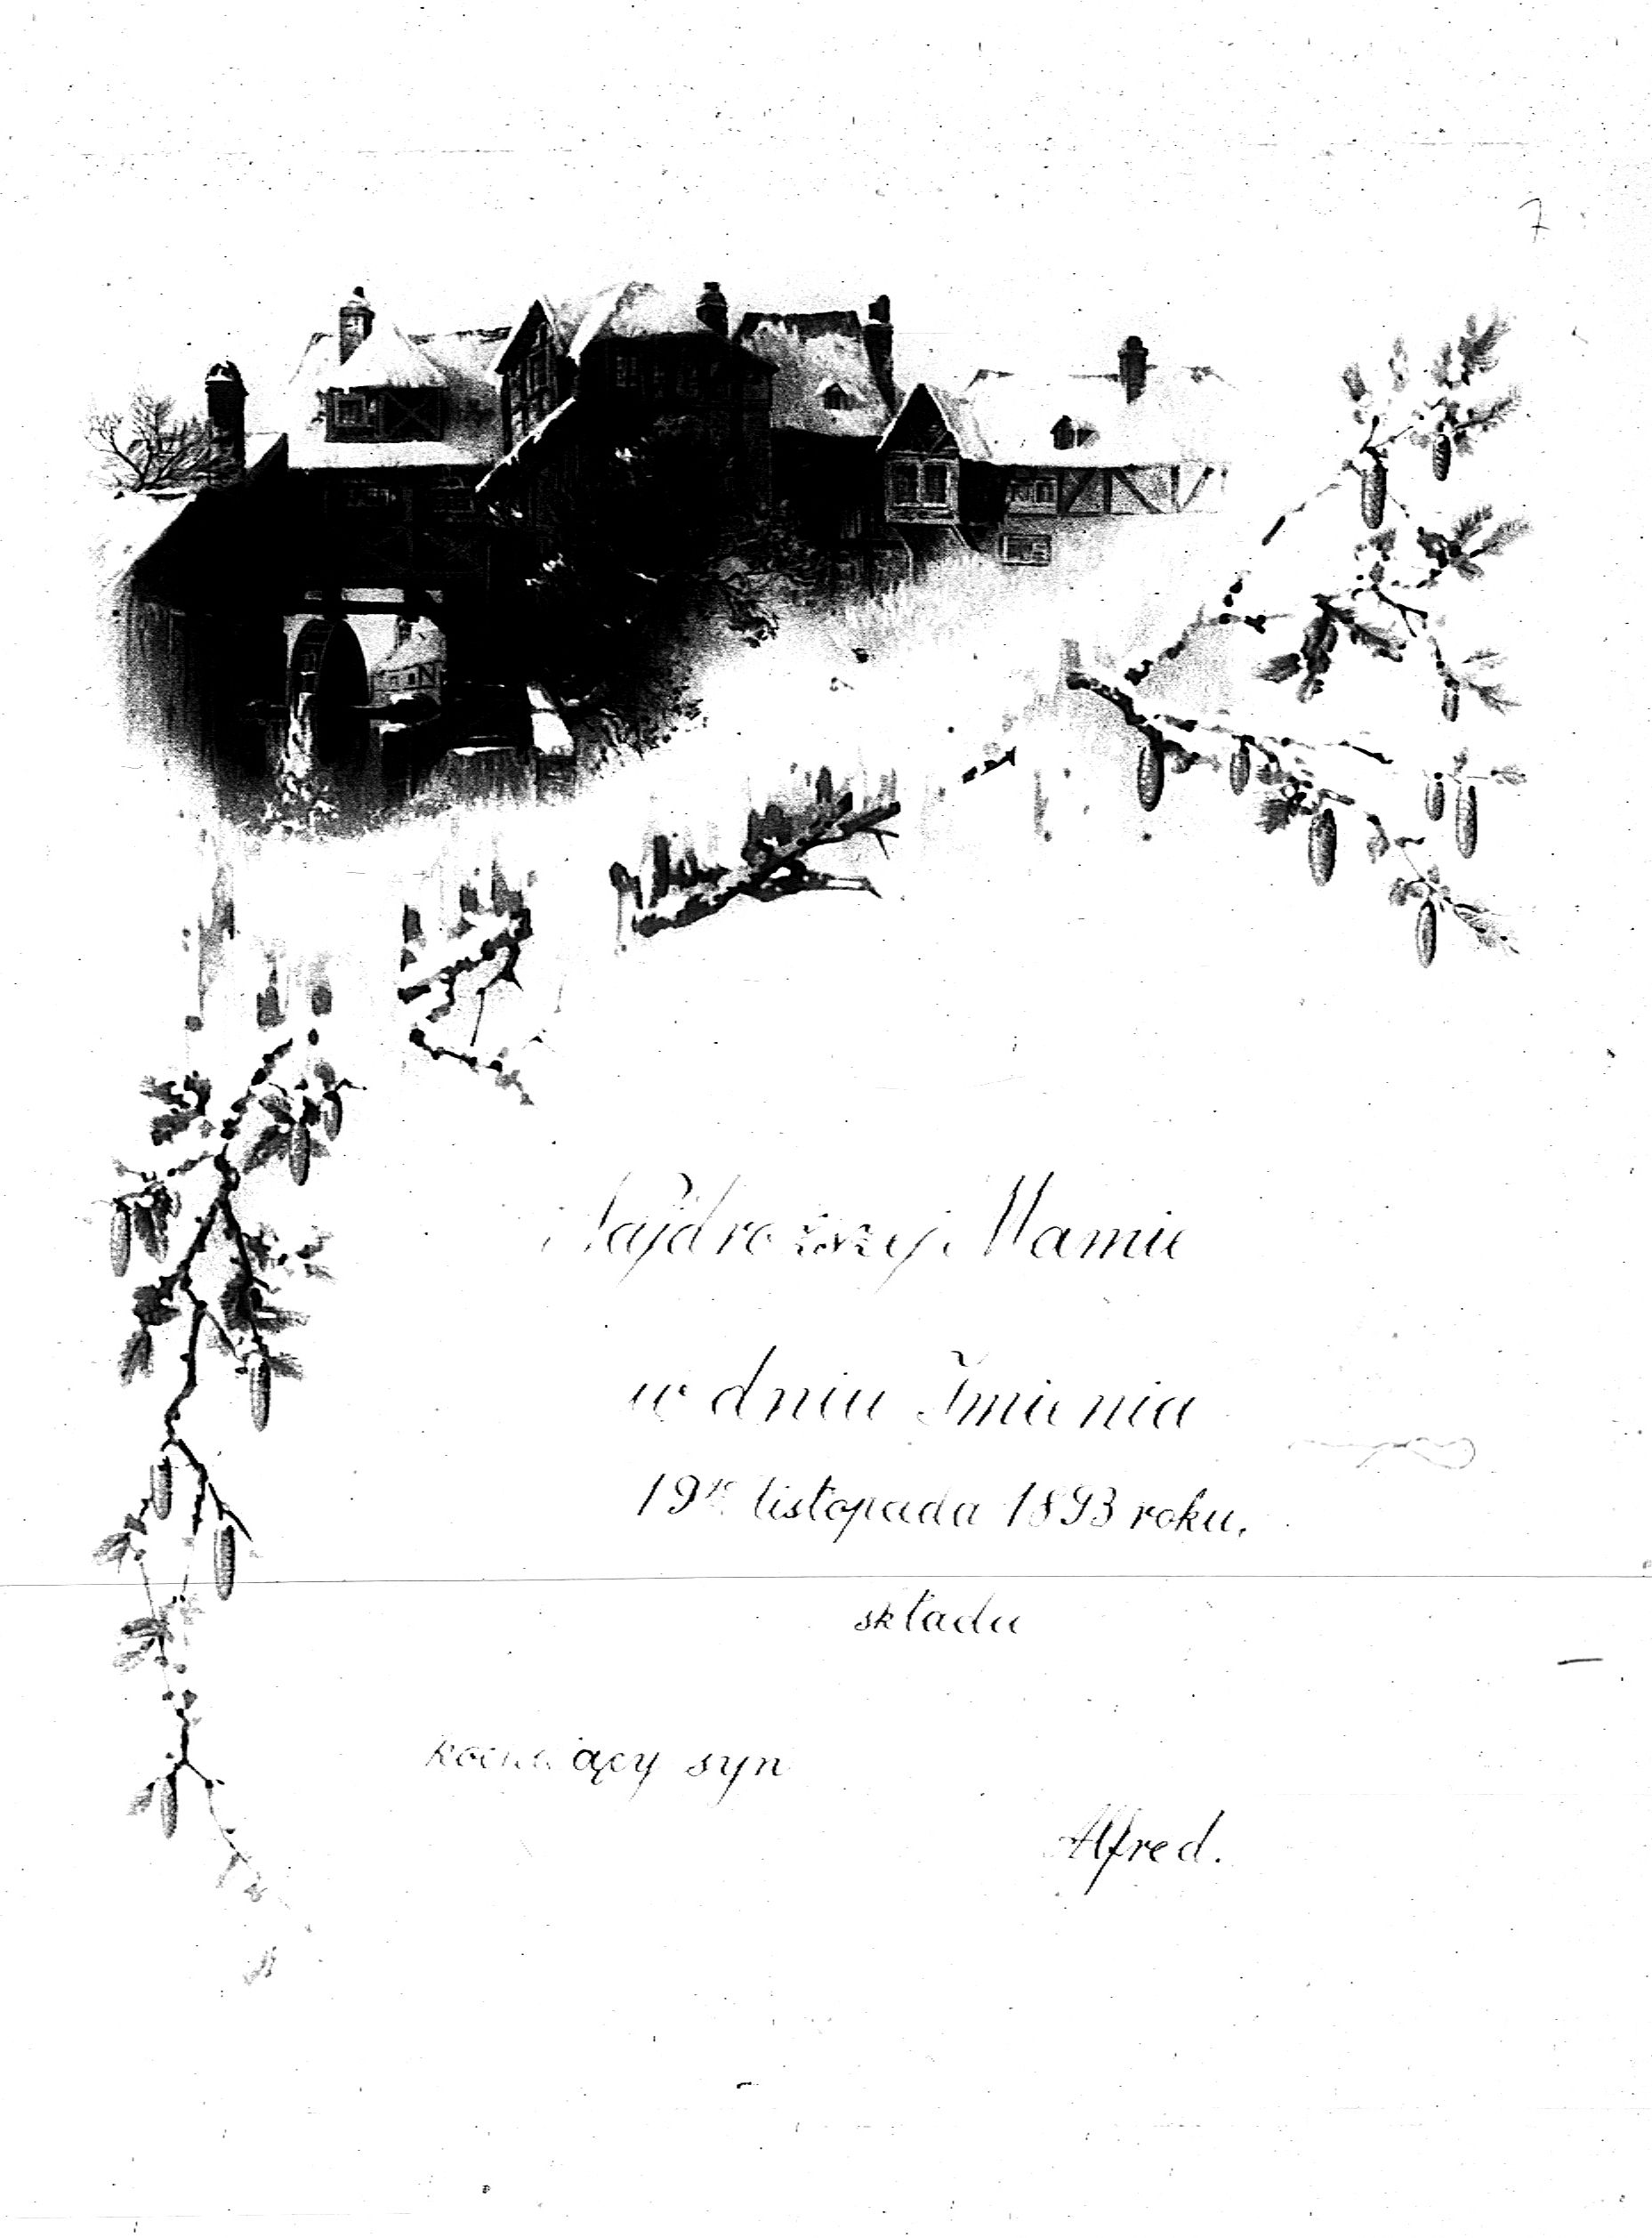 7
Najdroższej Mamie
w dniu Imienia
19go listopada 1893 roku.
składa
kochający syn
Alfred.